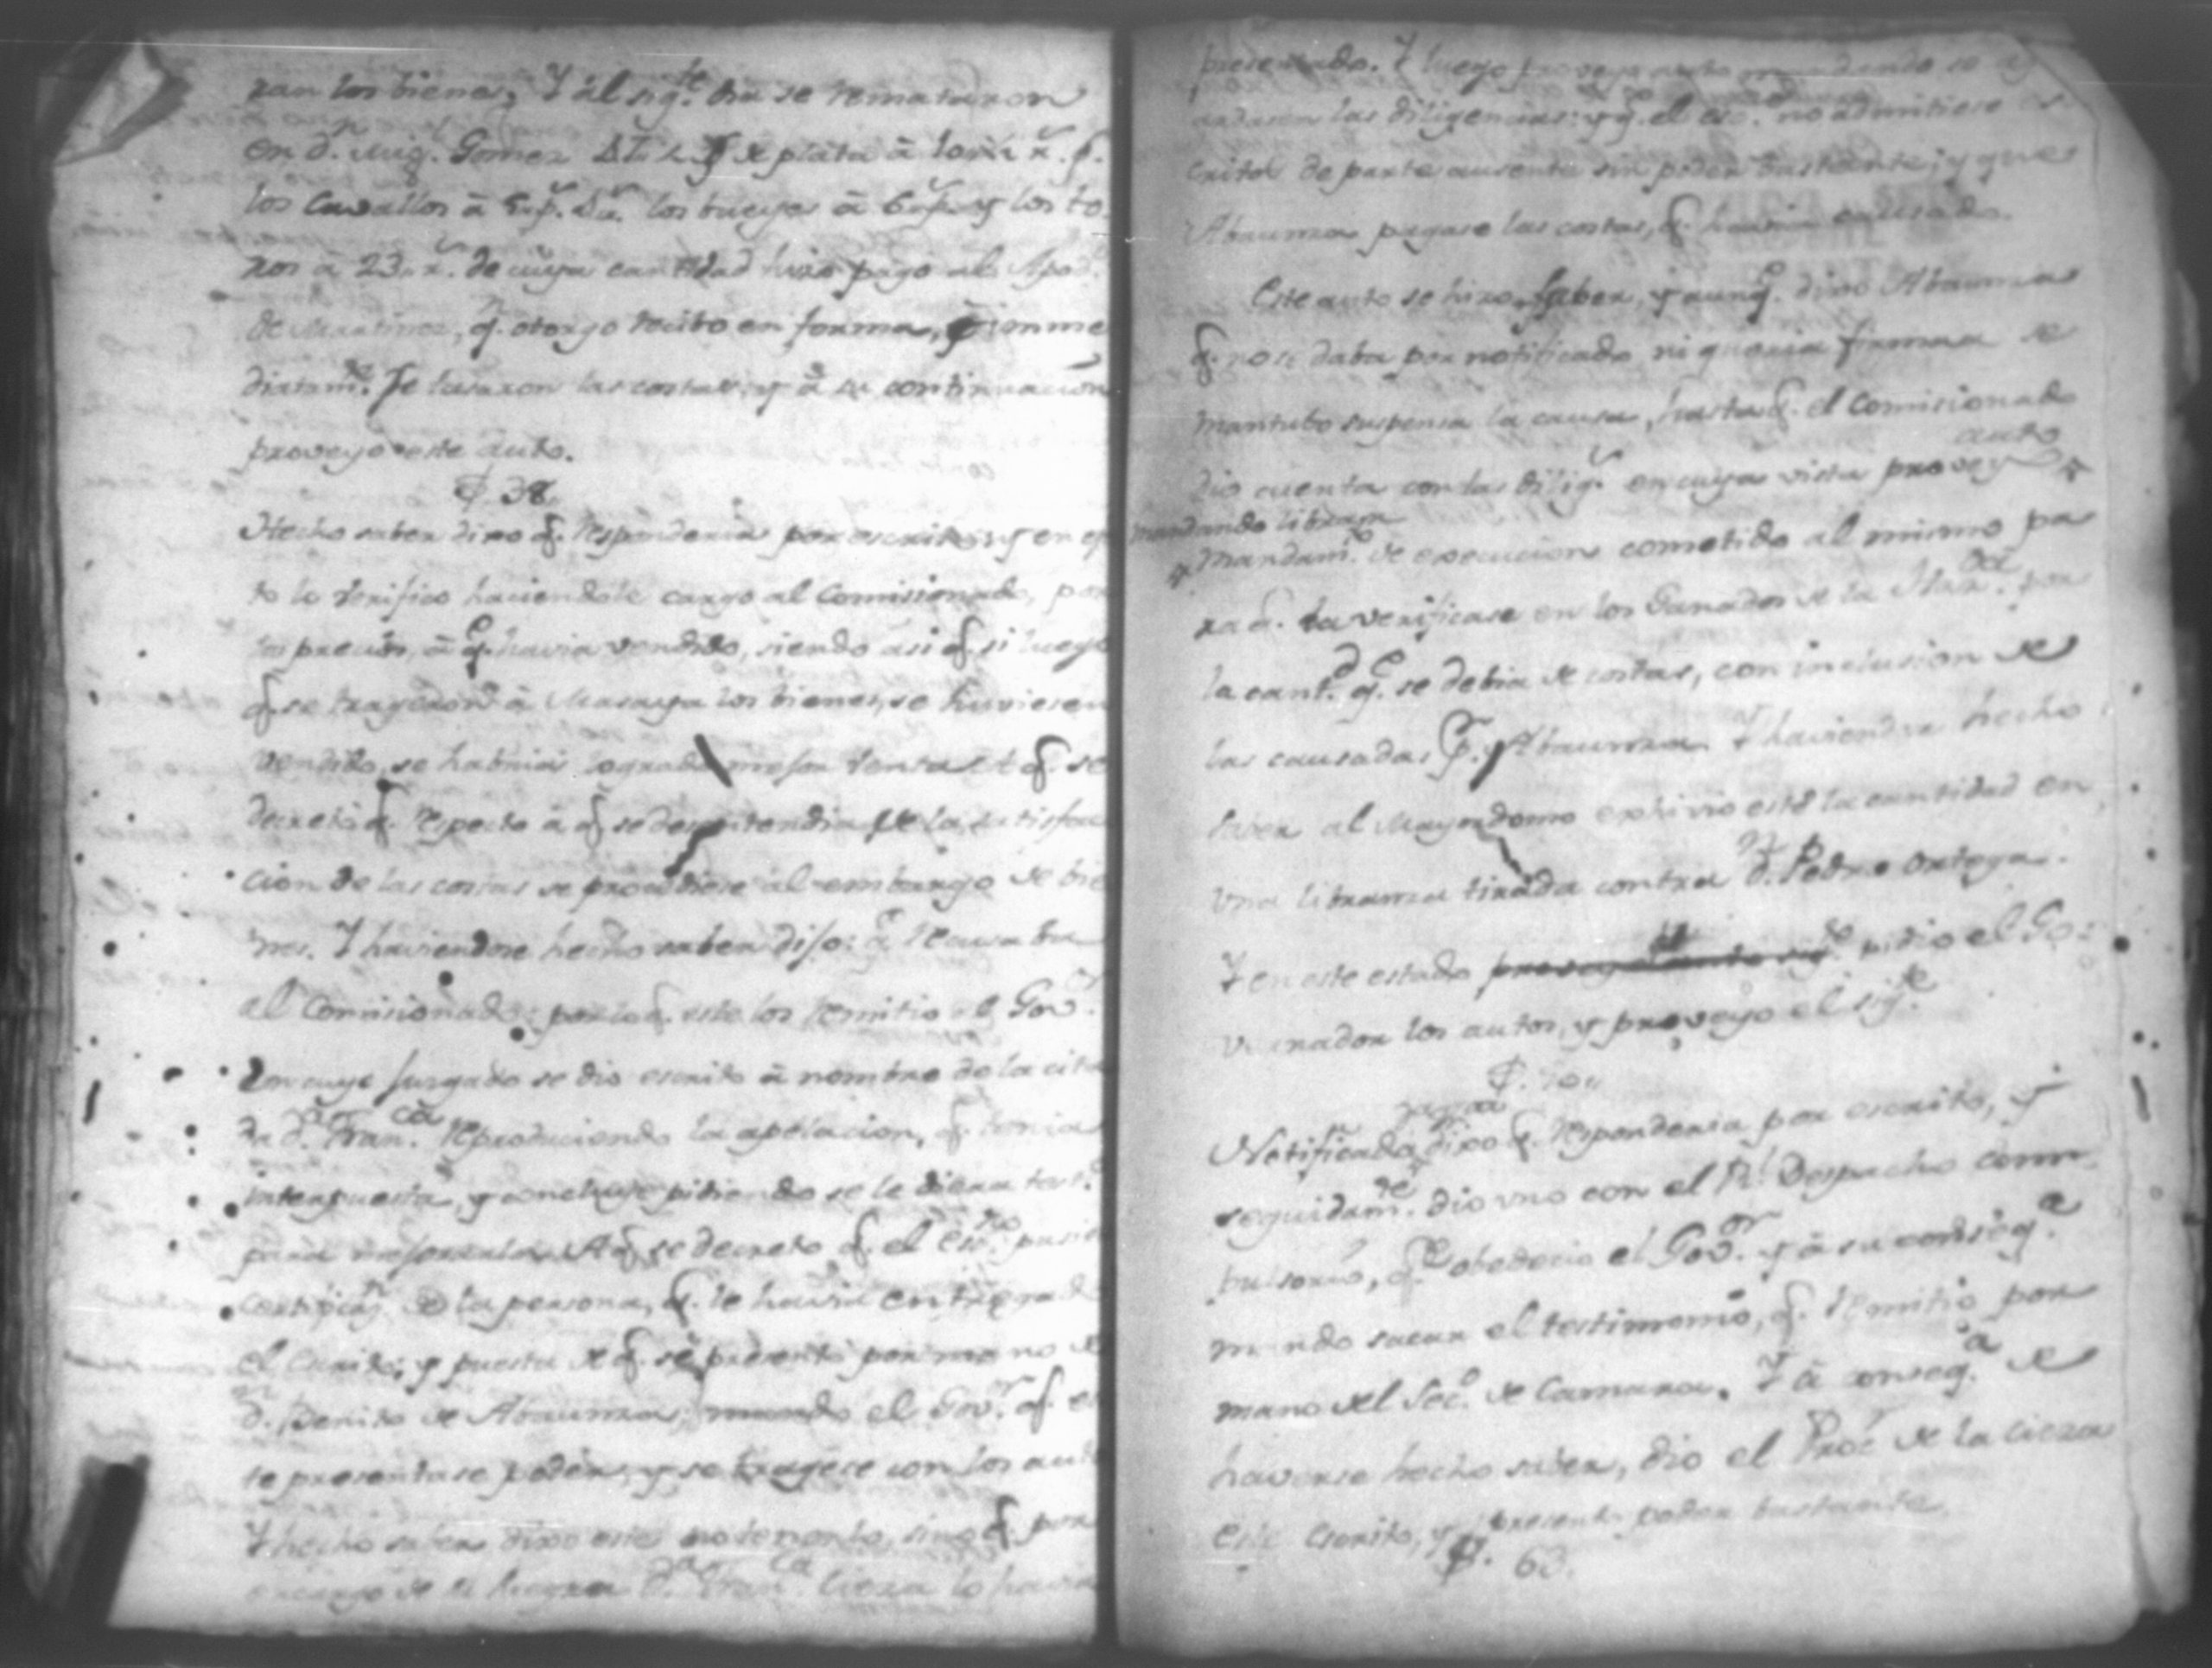 ran los bienes, Y al sig.te dia se remataron
en d.n Mig.l Gomez de plata à
los Cavallos à los bueyes à y los to
ros à 23 r.s de cuya cantidad hizo pago al Apod.o
de Martinez, q.e otorgo recibo en forma, è imme
diatam.te se tasaron las costas, y à su continuacion
proveyo este auto.
38
Hecho saber dixo q.e responderia por escrito, y en efe
to lo verifico haciendole cargo al Comisionado, por
los precios, à q.e havia vendido, siendo asi q.e si luego
q.e se trageron à Masaya los bienes, se huviesen
vendido, se habria logrado mejor venta A q.e se
decretó q.e respecto à q.e se desentendia de la satisfac
cion de las costas se procediese al embargo de bie
nes. Y haviendose hecho saber dijo: q.e recusaba
al Comisionado: por lo q.e este los remitio al Gov.or
En cuyo Juzgado se dio escrito à nombre de la cita
da d.a Fran.ca reproduciendo la apelacion, q.e tenia
interpuesta, y concluye pidiendo se le diera test.o
para mejorarla. A q.e se decreto q.e el Es.no pusie
certificaz.n de la persona, q.e le havia entregado
el Escrito; y puesta de q.e se presentó por mano de
d.n Benito de Abaunza, mando el Gov.or q.e es
te presentase poder, y se tragese con los auto
Y hecho saber dixo este no tenerlo, sino q.e por
encargo de su Suegra d.a Fran.ca Cieza lo havia
presentado. Y luego proveyo auto mandando se
las diligencias: y q.e el es.no no admitiese es
critos de parte ausente sin poder bastante; y que
Abaunza pagase las costas, q.e havia causado.
Este auto se hizo saber, y aunq.e dixo Abaunza
q.e no se daba por notificado ni queria firmar se
mantubo suspensa la causa, hasta q.e el Comisionado
dio cuenta con las dilig.s en cuya vista proveyó auto
mandando librar
mandam.to de execucion cometido al mismo pa
ra q.e la verificase en los Ganados de la Haz.da por
la cant.d q.e se debia de costas, con inclusion de
las causadas p.r Abaunza. Y haviendose hecho
saber al Mayordomo exhivio este la cantidad en
una libranza tirada contra d.n Pedro Ortega.
Y en este estado pidio el Go=
vernador los autos, y proveyo el sig.te
Notificado dixo q.e responderia por escrito, y
seguidam.te dio uno con el R.l Despacho com
pulsorio, q.e obedecio el Gov.or y à su conseq.a
mando sacar el testimonio, q.e remitio por
mano del Sec.o de Camara. Y à conseq.a de
haverse hecho saber, dio el Proc.r de la Cieza
este Escrito, y presento poder bastante.
63.